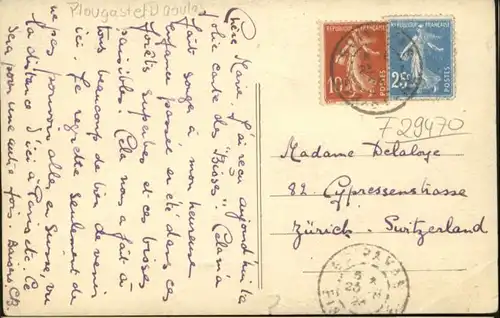 Plougastel Daoulas
Chère Marie. J'ai reçu aujourd'hui la
jolie carte des "Bisses". Cela m'a
fait songer à mon heureuse
enfance passée en été dans ces
forêts superbes et ces bisses
paisibles. Cela nous a fait à
tous beaucoup de bien de venir
ici. Je regrette seulement de
ne pas pouvoir aller en Suisse, vu
la distance d'ici à Paris etc. Ce
sera pour une autre fois. Baisers C.B.
REPUBLIQUE FRANÇAISE
10
POSTES
REPUBLIQUE FRANÇAISE
25c
POSTES
F 29470
Madame Delaloye
82. Cypressenstrasse
Zürich. Switzerland